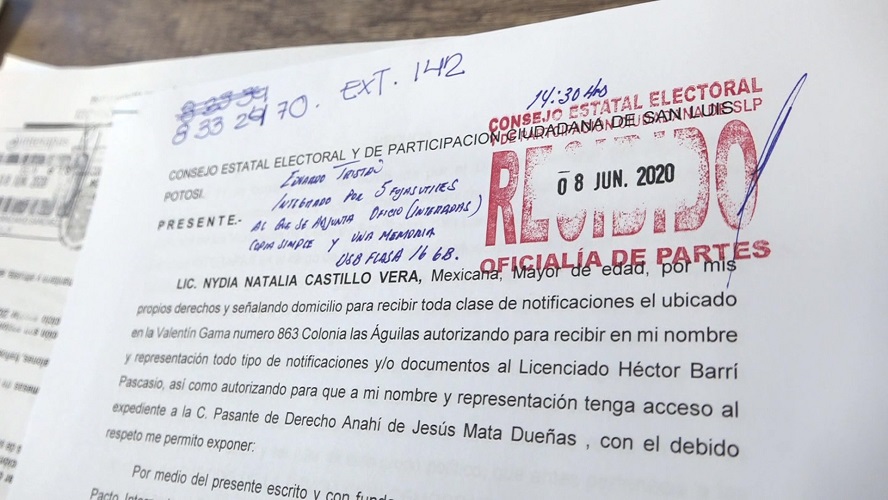 8 33 24 70. EXT. 142
14:30 hrs
CONSEJO ESTATAL ELECTORAL
Y DE PARTICIPACIÓN CIUDADANA DE SLP
RECIBIDO
08 JUN. 2020
OFICIALÍA DE PARTES
CONSEJO ESTATAL ELECTORAL Y DE PARTICIPACION CIUDADANA DE SAN LUIS
POTOSI.
EDUARDO TRISTÁN
INTEGRADO POR 5 FOJAS UTILES
PRESENTE.-
AL QUE SE ADJUNTA OFICIO (INTERADAS)
COPIA SIMPLE Y UNA MEMORIA
USB FLASH 16 GB.
LIC. NYDIA NATALIA CASTILLO VERA, Mexicana, Mayor de edad, por mis
propios derechos y señalando domicilio para recibir toda clase de notificaciones el ubicado
en la Valentín Gama numero 863 Colonia las Águilas autorizando para recibir en mi nombre
y representación todo tipo de notificaciones y/o documentos al Licenciado Héctor Barrí
Pascasio, así como autorizando para que a mi nombre y representación tenga acceso al
expediente a la C. Pasante de Derecho Anahí de Jesús Mata Dueñas , con el debido
respeto me permito exponer:
Por medio del presente escrito y con